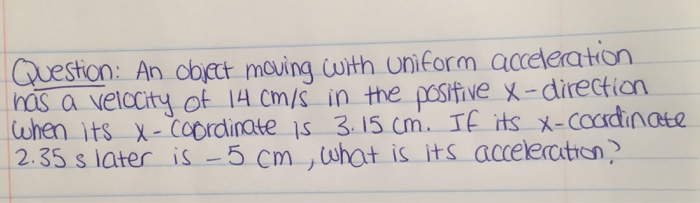 Question: An object moving with uniform acceleration
has a velocity of 14 cm/s in the positive x-direction
when its x-coordinate is 3.15 cm. If its x-coordinate
2.35 s later is -5 cm, what is its acceleration?